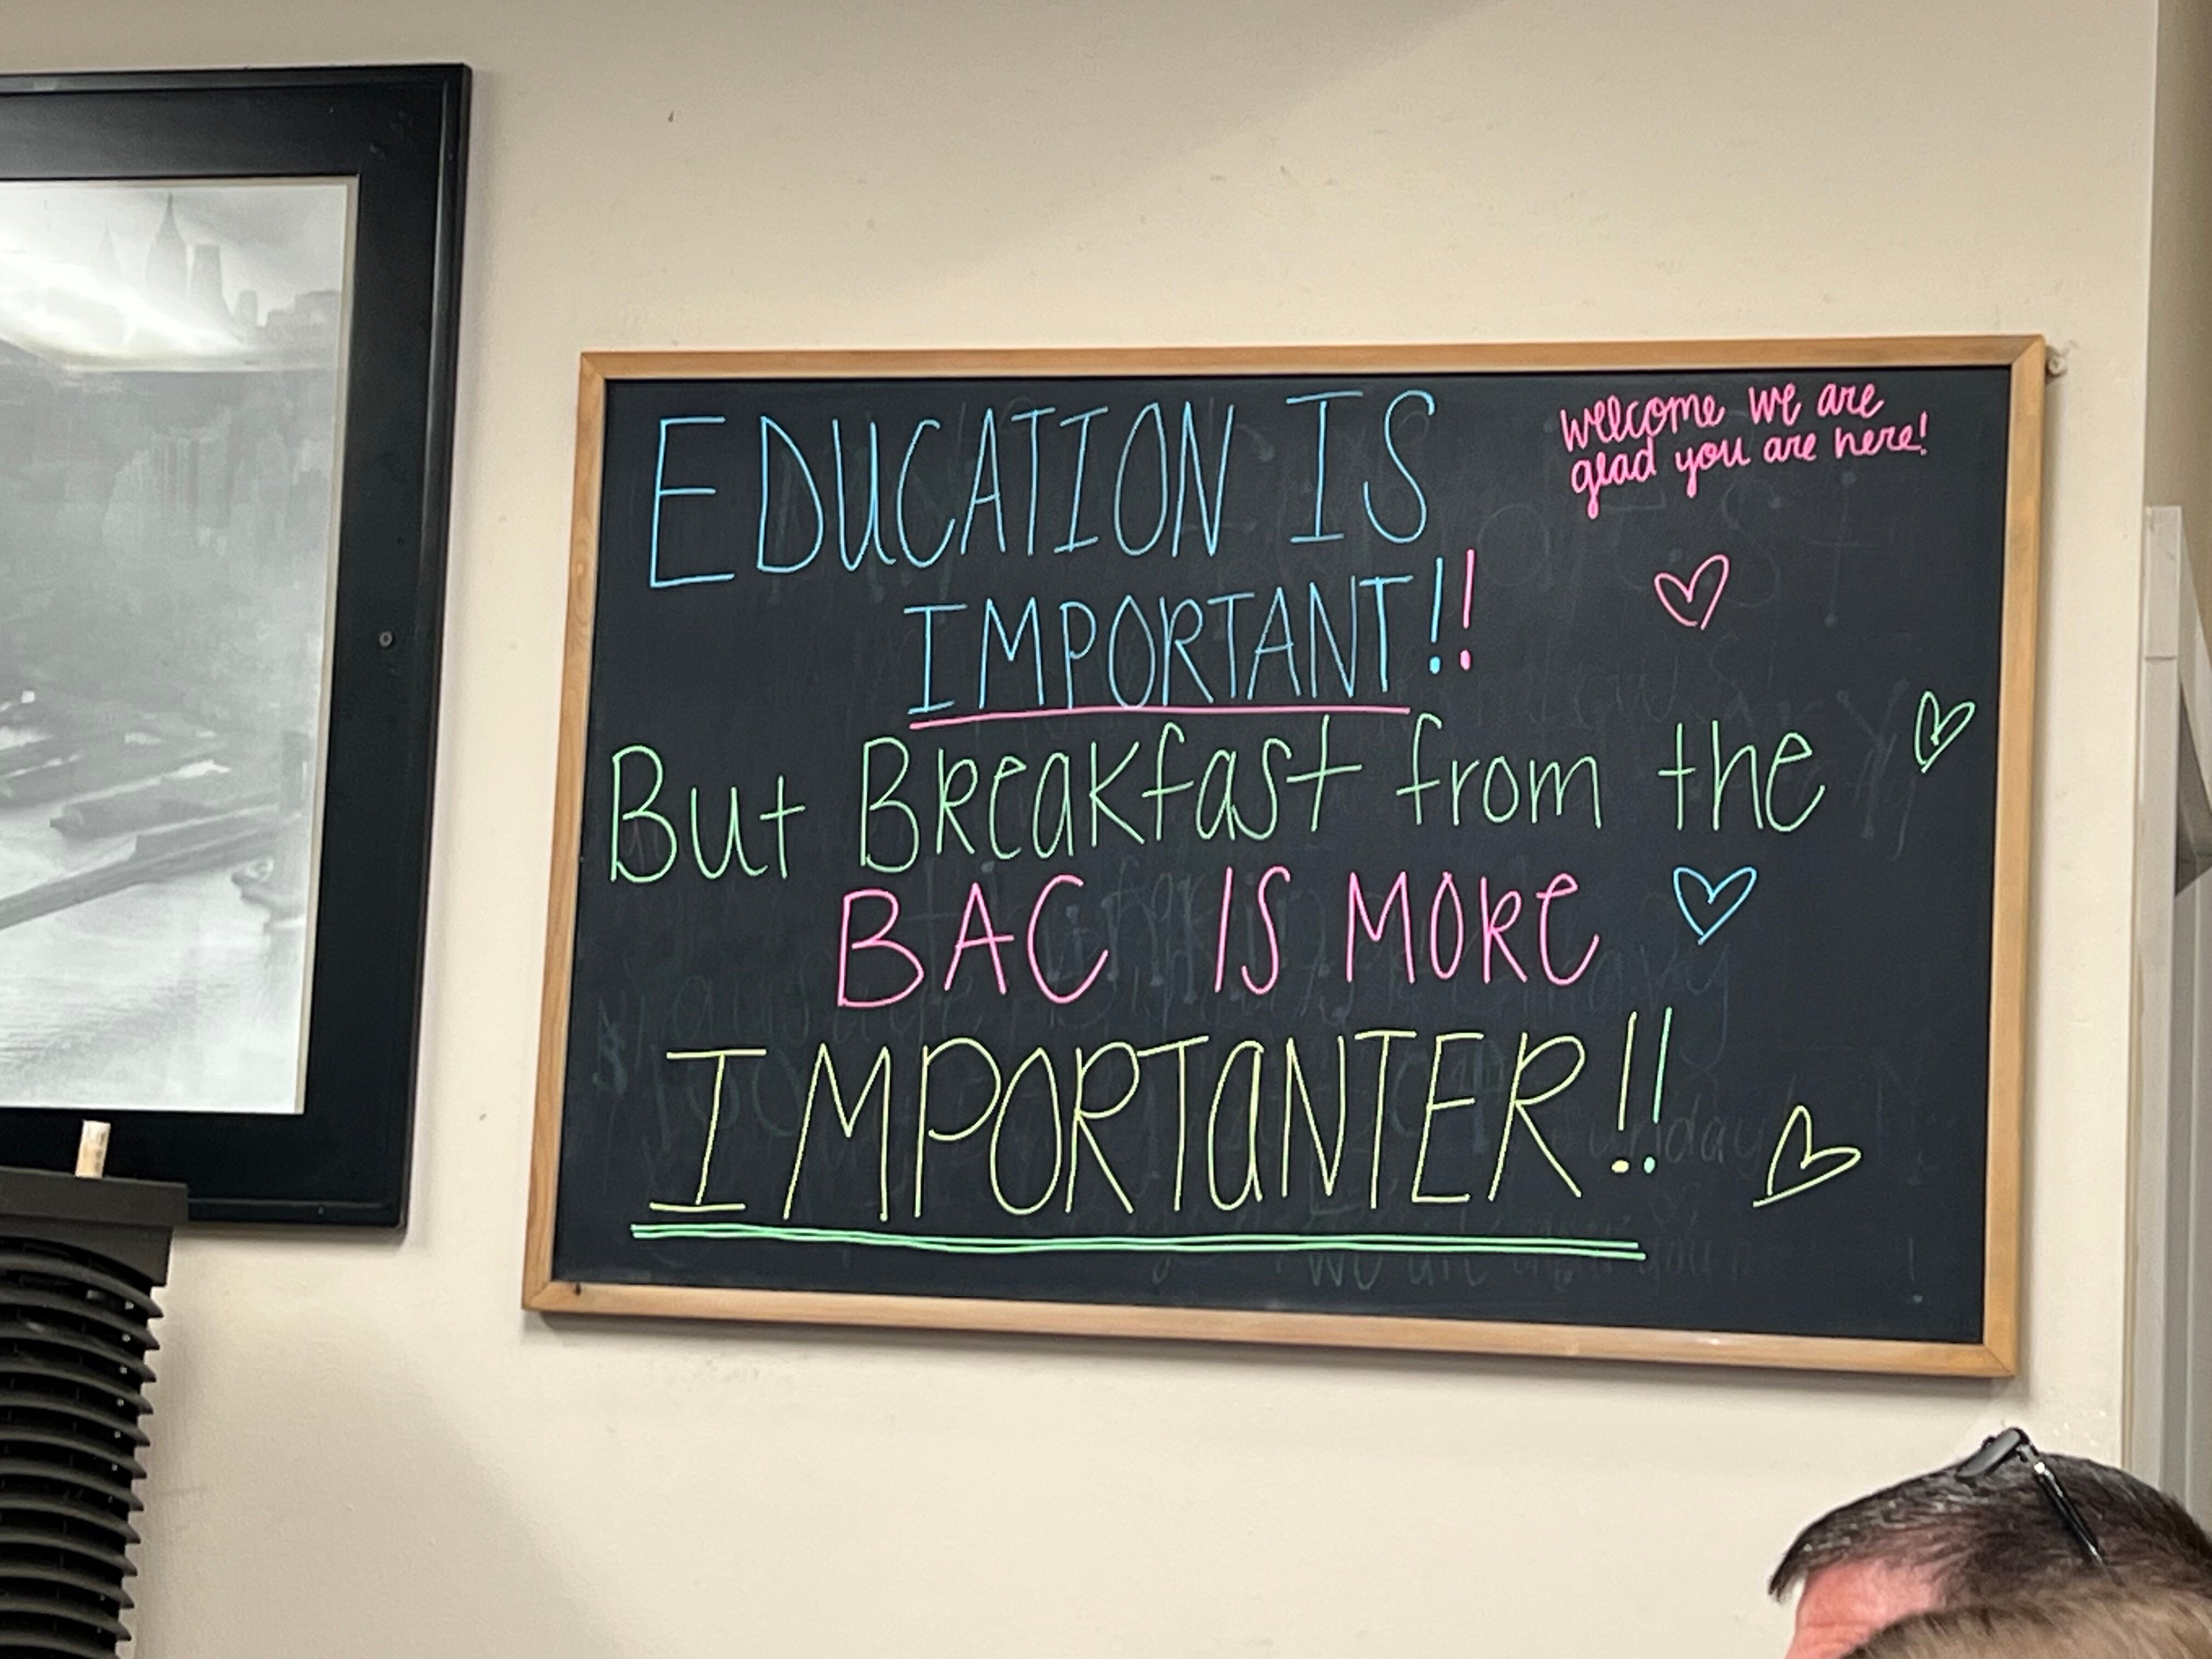 EDUCATION IS
welcome we are
glad you are here!
IMPORTANT!!
But BReakfast from the
BAC IS MORe
IMPORTaNTER!!